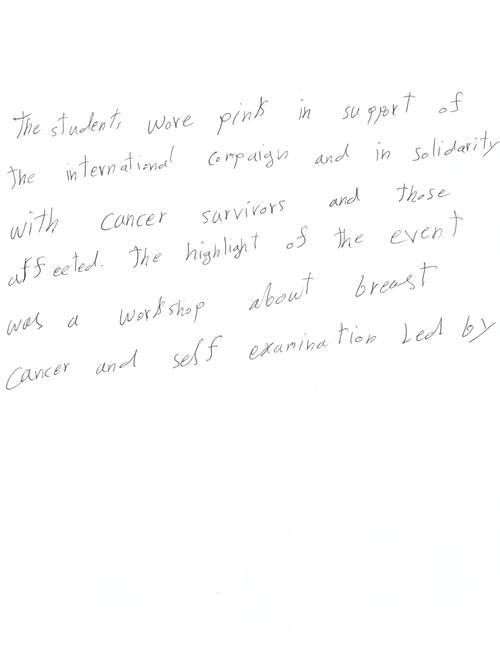 The students wore pink in support of
the international campaign and in solidarity
with cancer survivors and those
affected. The highlight of the event
was a workshop about breast
Cancer and self examination Led by